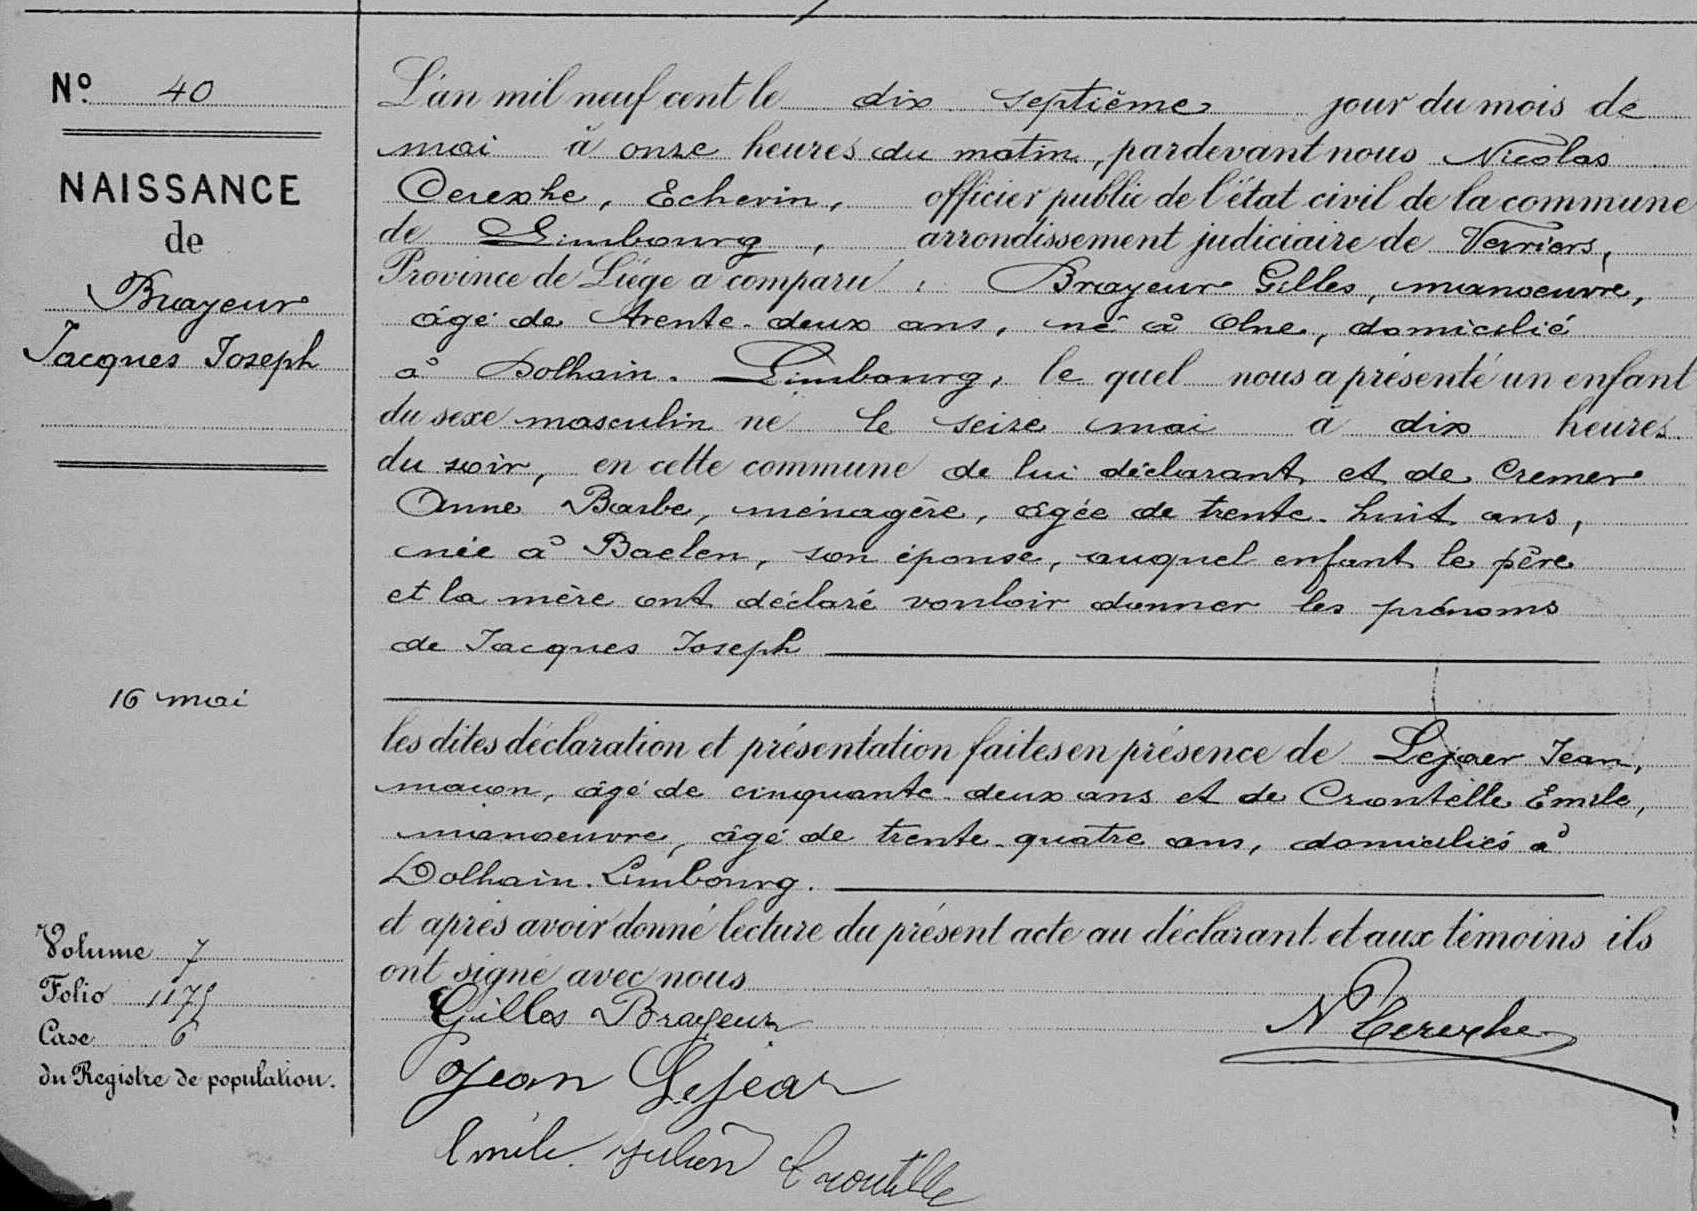 Nº 40
NAISSANCE
de
Brayeur
Jacques Joseph
16 mai
Volume 7
Folio 1175
Case 6
du Registre de population.
L'an mil neuf cent le dix septième jour du mois de
mai à onze heures du matin, pardevant nous Nicolas
Derexhe, Echevin, officier public de l'état civil de la commune
de Limbourg, arrondissement judiciaire de Verviers,
Province de Liége a comparu : Brayeur Gilles, manoeuvre,
âgé de trente-deux ans, né à Olne, domicilié
à Dolhain-Limbourg, le quel nous a présenté un enfant
du sexe masculin né le seize mai à dix heures
du soir, en cette commune de lui déclarant et de Cremer
Anne Barbe, ménagère, âgée de trente-huit ans,
née à Baelen, son épouse, auquel enfant le père
et la mère ont déclaré vouloir donner les prénoms
de Jacques Joseph
les dites déclaration et présentation faites en présence de Lejaer Jean,
maçon, âgé de cinquante-deux ans et de Crontelle Emile,
manoeuvre, âgé de trente-quatre ans, domiciliés à
Dolhain-Limbourg.
et après avoir donné lecture du présent acte au déclarant et aux témoins ils
ont signé avec nous
Gilles Brayeur
N Derexhe
Jean Lejear
Emile Julien Crontelle